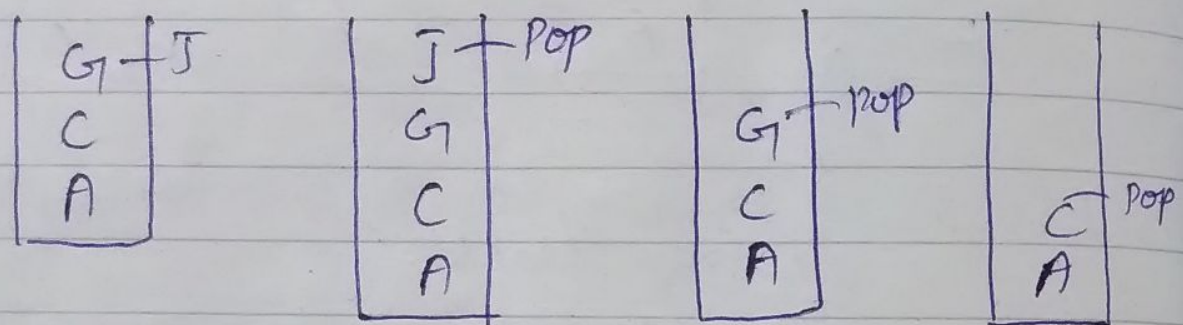 G J
C
A
J Pop
G
C
A
G pop
C
A
C Pop
A